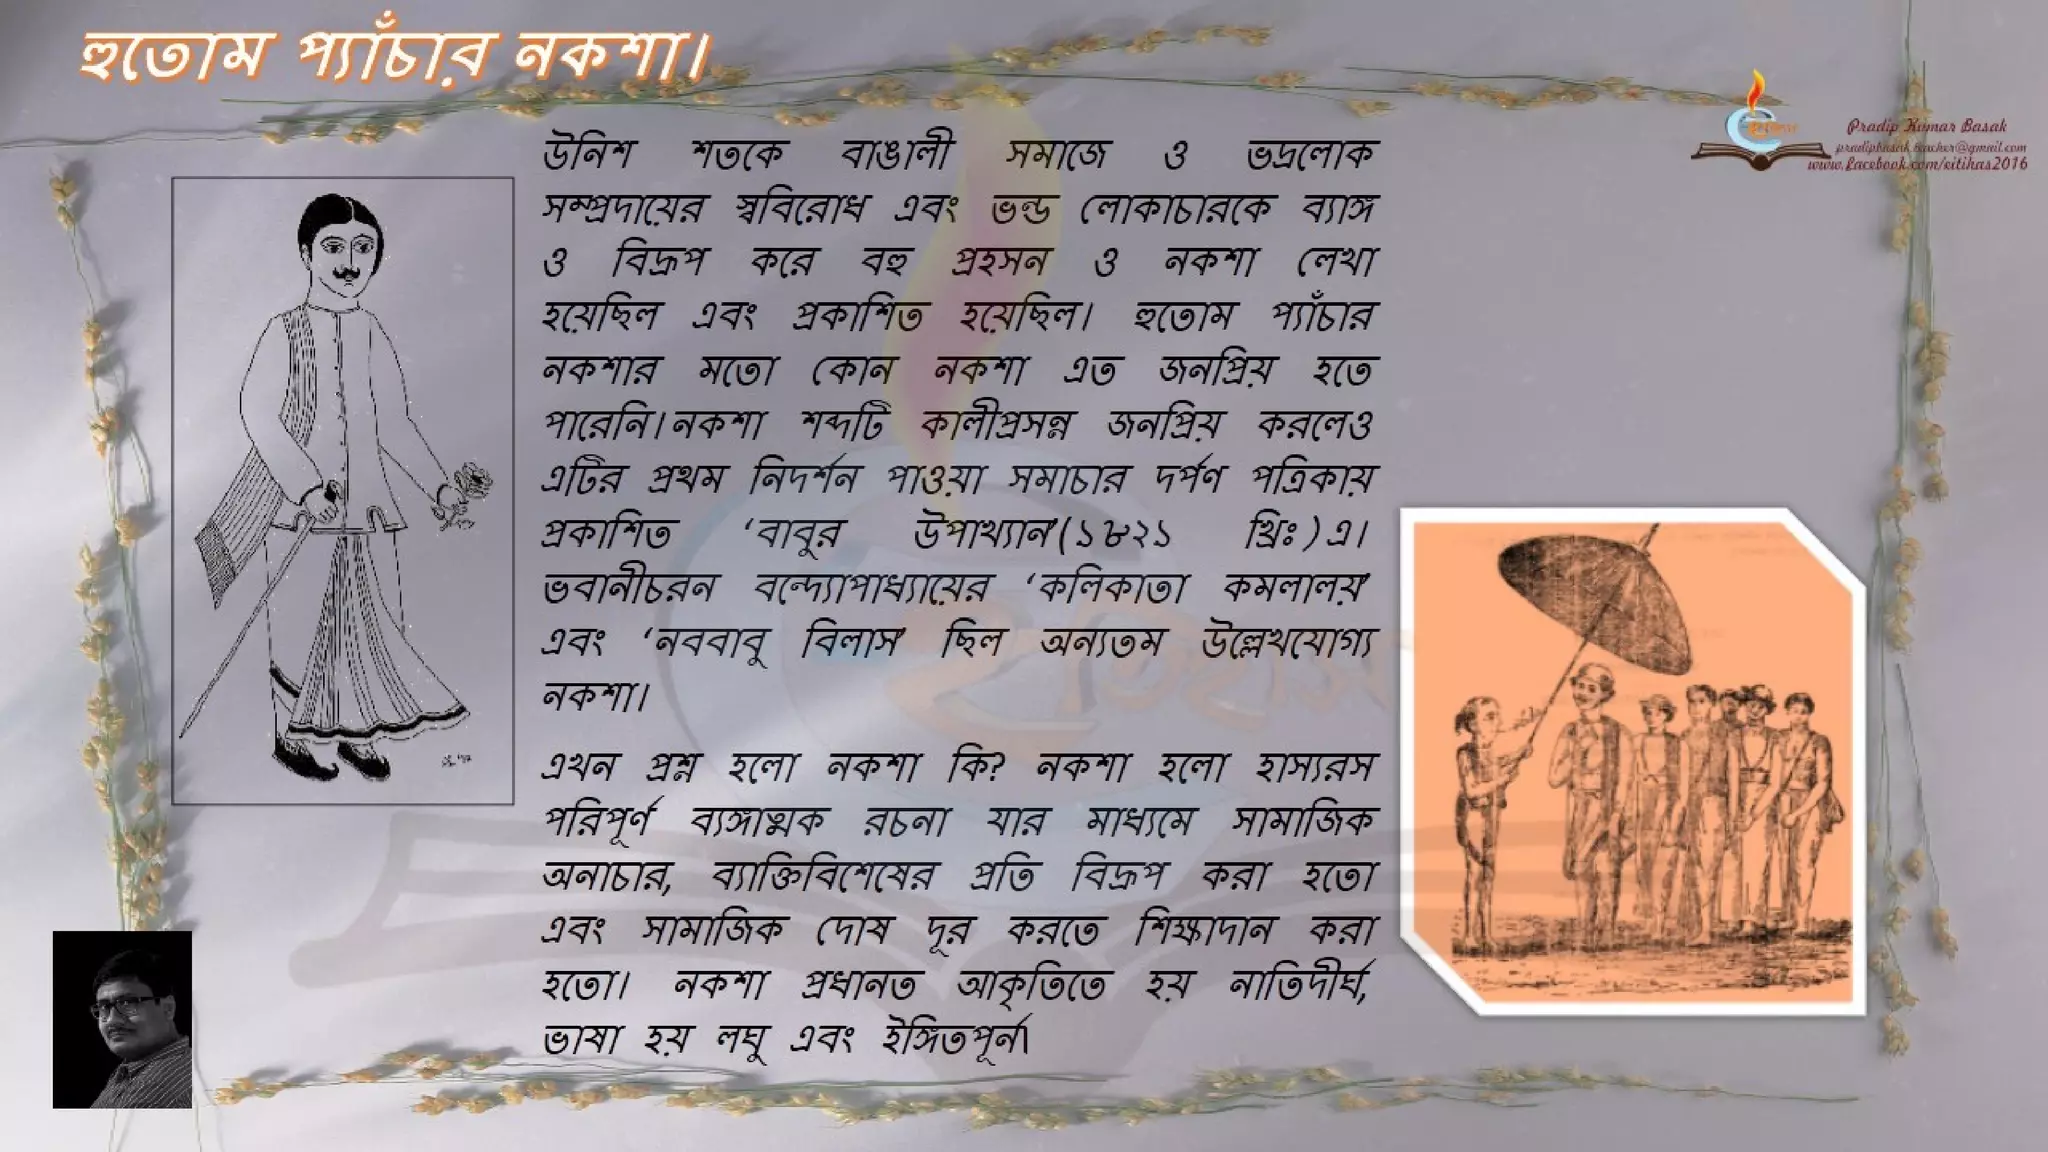 হুতোম প্যাঁচার নকশা।
Pradip Kumar Basak
pradipbasak.teacher@gmail.com
www.facebook.com/eitihas2016
উনিশ শতকে বাঙালী সমাজে ও ভদ্রলোক
সম্প্রদায়ের স্ববিরোধ এবং ভন্ড লোকাচারকে ব্যাঙ্গ
ও বিদ্রূপ করে বহু প্রহসন ও নকশা লেখা
হয়েছিল এবং প্রকাশিত হয়েছিল। হুতোম প্যাঁচার
নকশার মতো কোন নকশা এত জনপ্রিয় হতে
পারেনি।নকশা শব্দটি কালীপ্রসন্ন জনপ্রিয় করলেও
এটির প্রথম নিদর্শন পাওয়া সমাচার দর্পণ পত্রিকায়
প্রকাশিত ‘বাবুর উপাখ্যান’(১৮২১ খ্রিঃ)এ।
ভবানীচরন বন্দ্যোপাধ্যায়ের ‘কলিকাতা কমলালয়’
এবং ‘নববাবু বিলাস’ ছিল অন্যতম উল্লেখযোগ্য
নকশা।
এখন প্রশ্ন হলো নকশা কি? নকশা হলো হাস্যরস
পরিপূর্ণ ব্যঙ্গাত্মক রচনা যার মাধ্যমে সামাজিক
অনাচার, ব্যাক্তিবিশেষের প্রতি বিদ্রূপ করা হতো
এবং সামাজিক দোষ দূর করতে শিক্ষাদান করা
হতো। নকশা প্রধানত আকৃতিতে হয় নাতিদীর্ঘ,
ভাষা হয় লঘু এবং ইঙ্গিতপূর্ন।
ইতিহাস